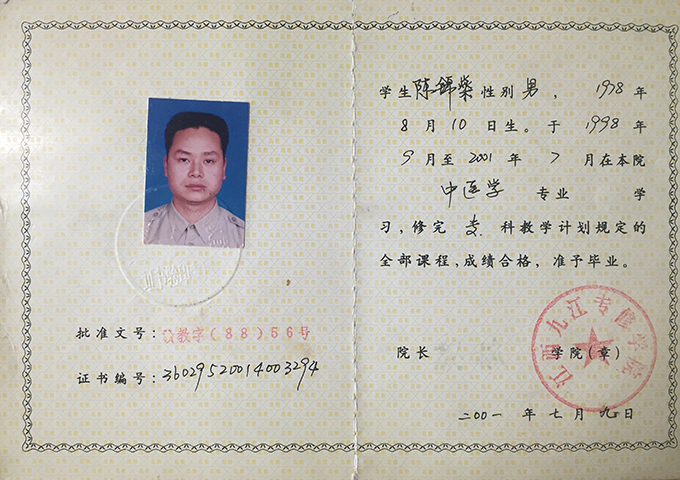 批准文号:教字(88)56号
证书编号:36029520014003294
学生陈锦荣性别男,1978年
8月10日生。于1998年
9月至2001年7月在本院
中医学专业学
习,修完专科教学计划规定的
全部课程,成绩合格,准予毕业。
院长 学院(章)
江西九江专修学院
二00一年七月九日